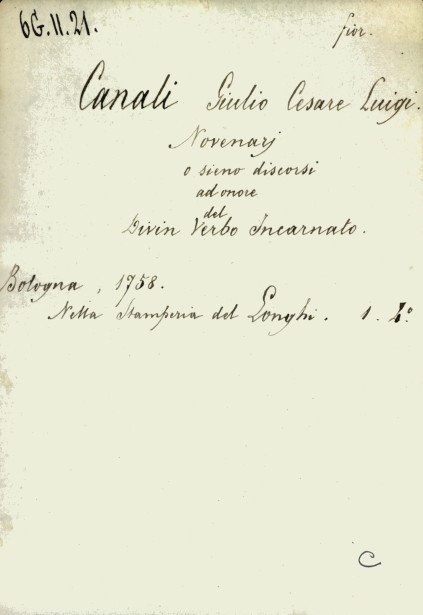 6G.II.21.
fior.
Canali Giulio Cesare Luigi.
Novenarj
o sieno discorsi
ad onore
del
Divin Verbo Incarnato.
Bologna, 1758.
Nella Stamperia del Longhi. 1. 4.º
C